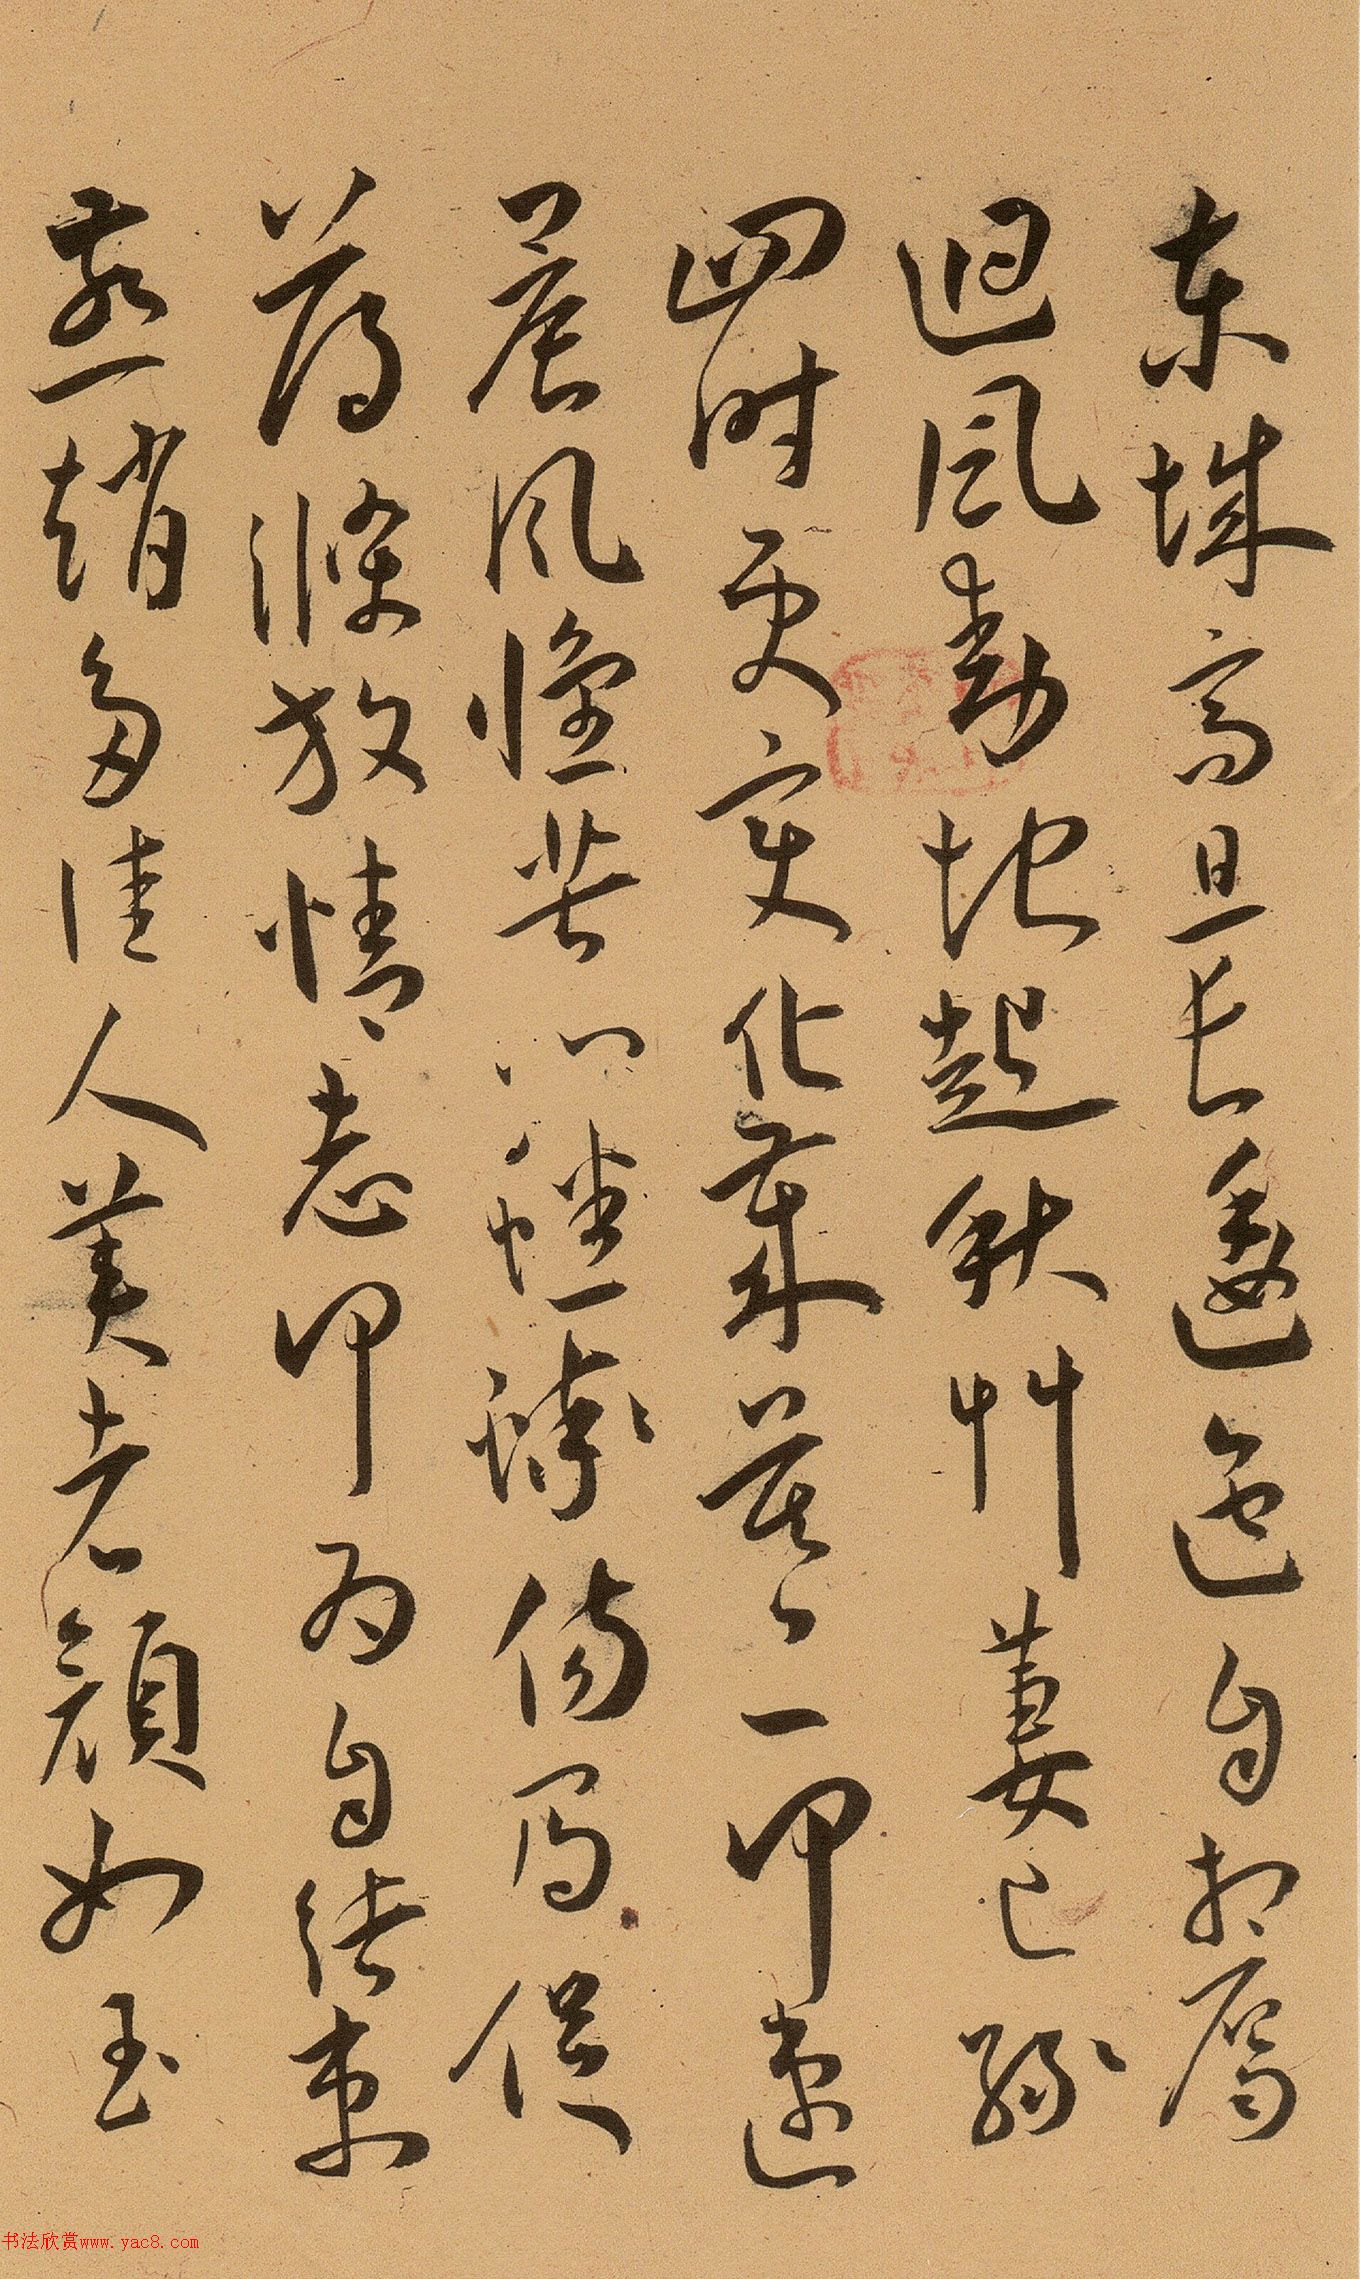 東城高且長逶迤自相屬
迴風動地起秋艸萋已綠
四時更變化歲暮一何速
晨風懷苦心蟋蟀傷局促
蕩滌放情志何為自結束
燕趙多佳人美者顏如玉
书法欣赏www.yac8.com